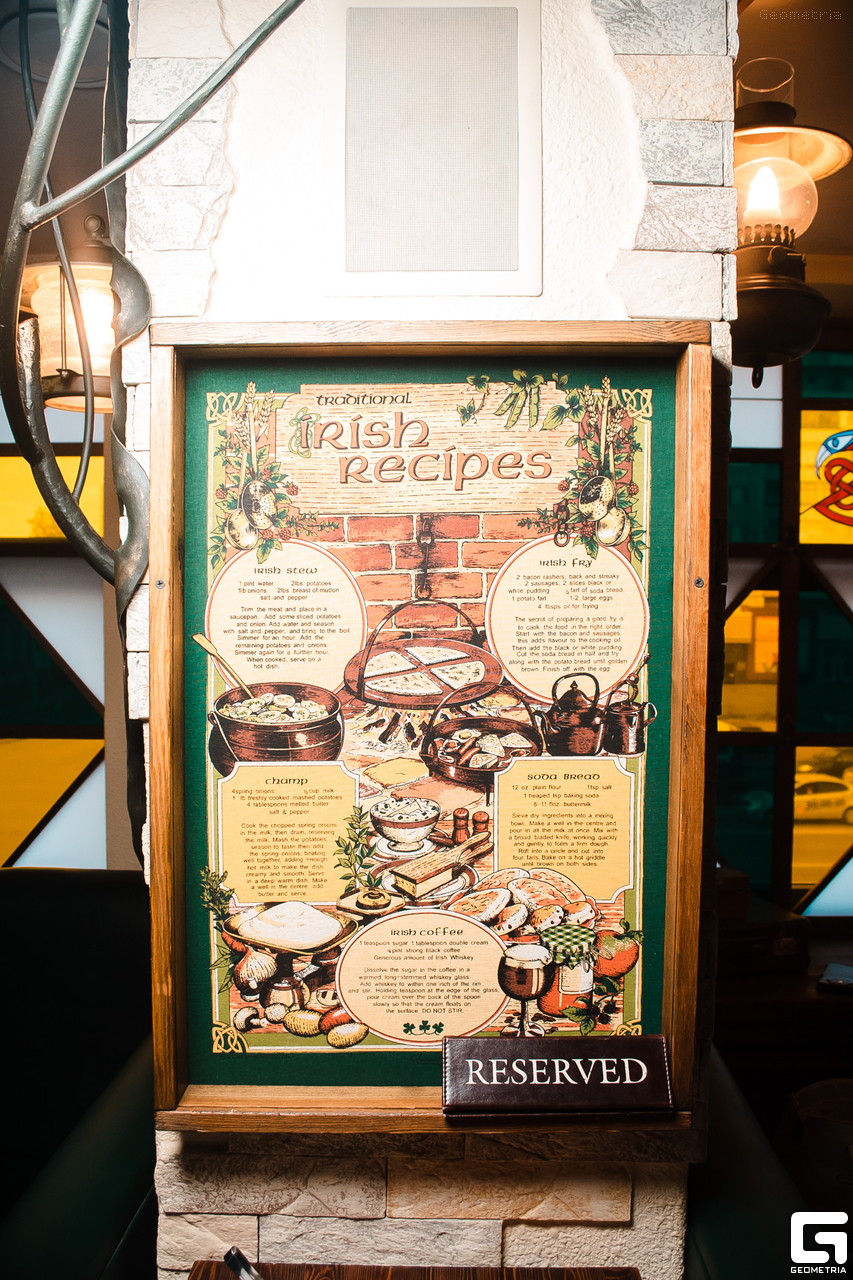 Geometria
traditional
irish
recipes
irish stew
1 pint water 2lbs potatoes
1lb onions 2lbs breast of mutton
salt and pepper
Trim the meat and place in a
saucepan. Add some sliced potatoes
and onion. Add water and season
with salt and pepper, and bring to the boil.
Simmer for an hour. Add the
remaining potatoes and onions.
Simmer again for a further hour.
When cooked, serve on a
hot dish.
irish fry
2 bacon rashers, back and streaky
2 sausages, 2 slices black or
white pudding farl of soda bread
1 potato farl 1-2 large eggs
4 tbsps oil for frying
The secret of preparing a good fry is
to cook the food in the right order.
Start with the bacon and sausages,
this adds flavour to the cooking oil.
Then add the black or white pudding.
Cut the soda bread in half and fry
along with the potato bread until golden
brown. Finish off with the egg.
champ
4 spring onions cup milk
1 lb freshly cooked mashed potatoes
4 tablespoons melted butter
salt & pepper
Cook the chopped spring onions
in the milk, then drain, reserving
the milk. Mash the potatoes,
season to taste then add
the spring onions, beating
well together, adding enough
hot milk to make the dish
creamy and smooth. Serve
in a deep warm dish. Make
a well in the centre, add
butter and serve.
soda bread
12 oz. plain flour 1tsp salt
1 heaped tsp baking soda
8-11 floz. buttermilk
Sieve dry ingredients into a mixing
bowl. Make a well in the centre and
pour in all the milk at once. Mix with
a broad bladed knife, working quickly
and gently, to form a firm dough.
Roll into a circle and cut into
four farls. Bake on a hot griddle
until brown on both sides.
irish coffee
1 teaspoon sugar 1 tablespoon double cream
pint strong black coffee
Generous amount of Irish Whiskey
Dissolve the sugar in the coffee in a
warmed, long-stemmed whiskey glass.
Add whiskey to within one inch of the rim
and stir. Holding teaspoon at the edge of the glass,
pour cream over the back of the spoon
slowly so that the cream floats on
the surface. DO NOT STIR.
RESERVED
GEOMETRIA